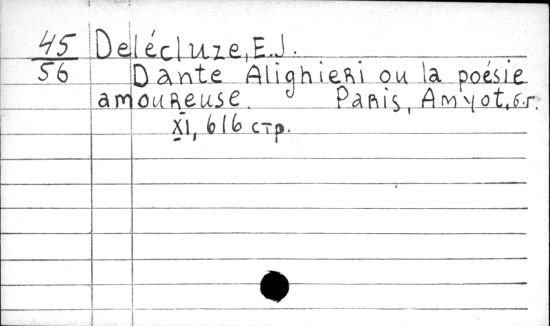 45 Delécluze, E.J.
56 Dante Alighieri ou la poésie
amoureuse. Paris, Amyot, б.г.
XI, 616 стр.